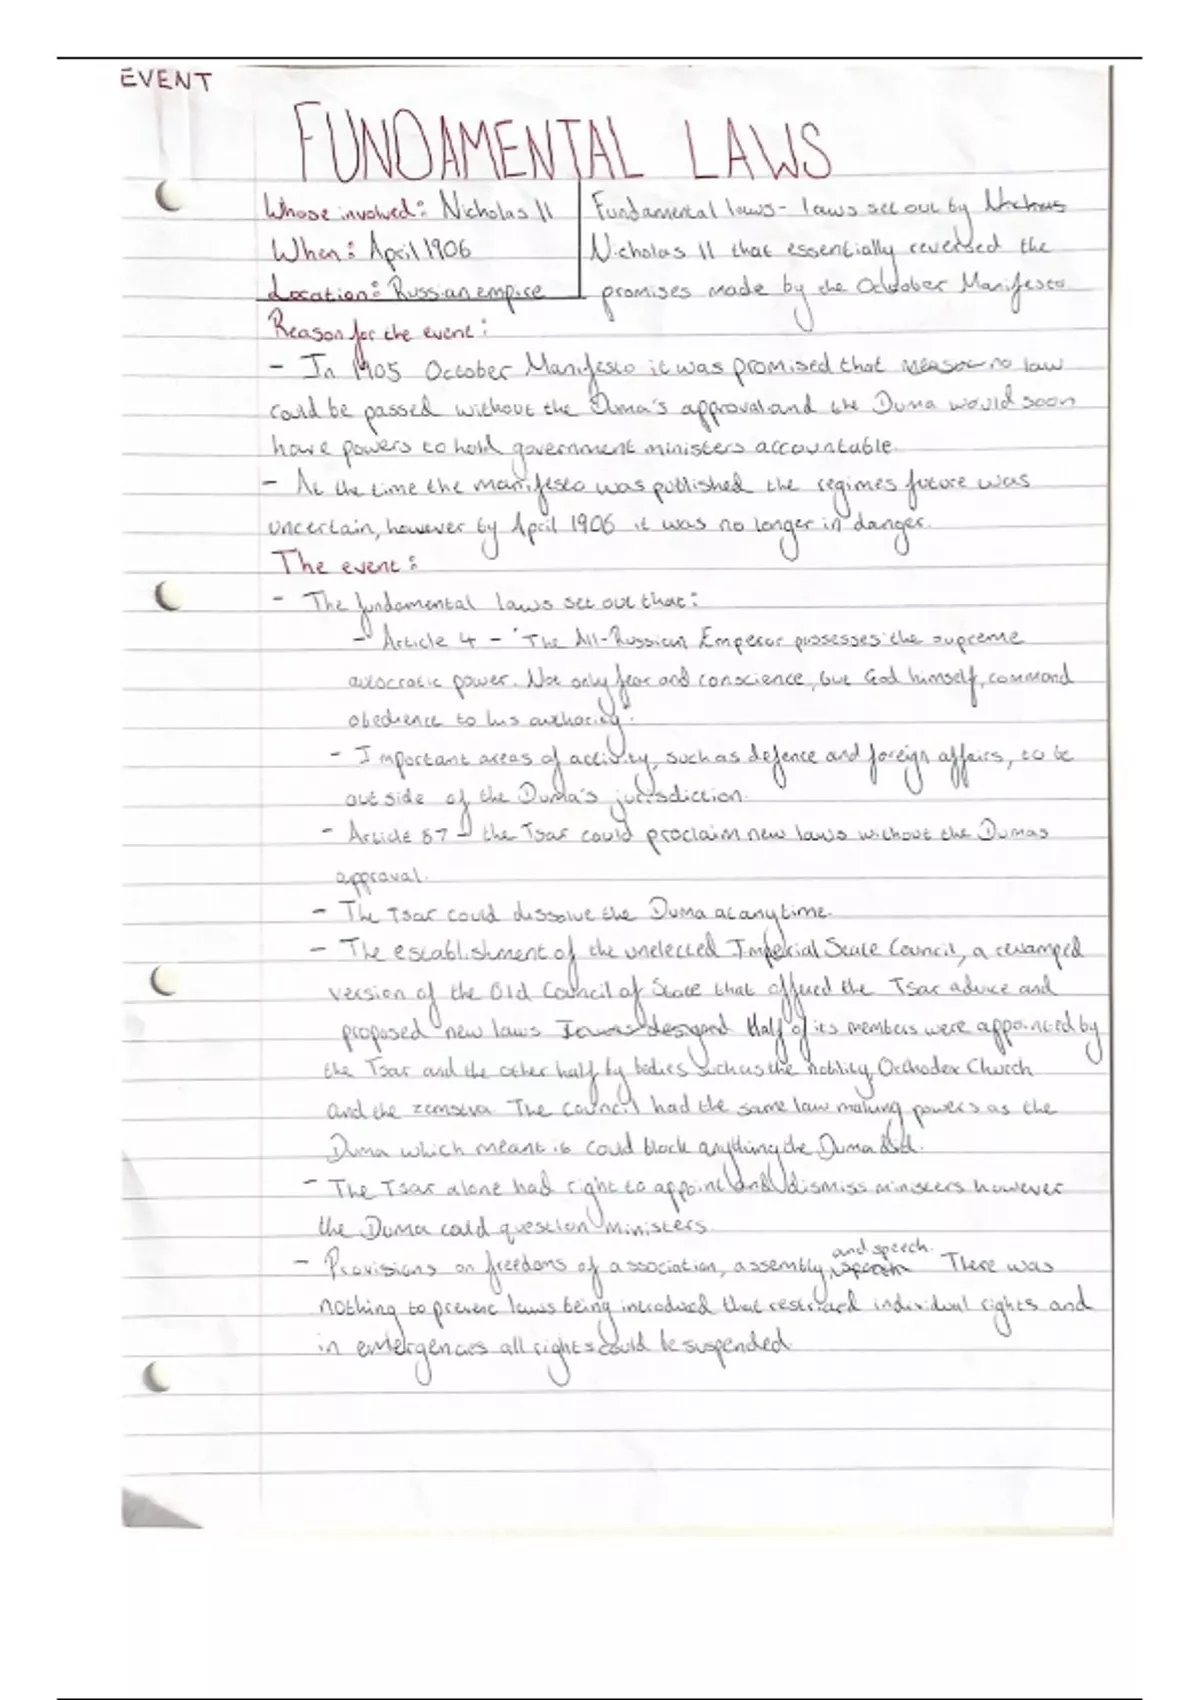 EVENT
FUNDAMENTAL LAWS
Whose involved: Nicholas II
When: April 1906
Location: Russian empire
Fundamental laws - laws set out by Nicholas
Nicholas II that essentially reversed the
promises made by the October Manifesto
Reason for the event:
- In 1905 October Manifesto it was promised that no law
could be passed without the Duma's approval and the Duma would soon
have powers to hold government ministers accountable.
- At the time the manifesto was published the regimes future was
uncertain, however by April 1906 it was no longer in danger.
The event:
- The fundamental laws set out that:
- Article 4 - 'The All-Russian Emperor possesses the supreme
autocratic power. Not only fear and conscience, but God himself, command
obedience to his authority'.
- Important areas of activity, such as defence and foreign affairs, to be
outside of the Duma's jurisdiction.
- Article 87 - the Tsar could proclaim new laws without the Dumas
approval.
- The Tsar could dissolve the Duma at any time.
- The establishment of the unelected Imperial State Council, a revamped
version of the Old Council of State that offered the Tsar advice and
proposed new laws. It was designed Half of its members were appointed by
the Tsar and the other half by bodies such as the nobility, Orthodox Church
and the zemstva. The Council had the same law making powers as the
Duma which meant it could block anything the Duma did.
- The Tsar alone had right to appoint and dismiss ministers however
the Duma could question ministers.
- Provisions on freedoms of association, assembly, and speech. There was
nothing to prevent laws being introduced that restricted individual rights and
in emergencies all rights could be suspended.